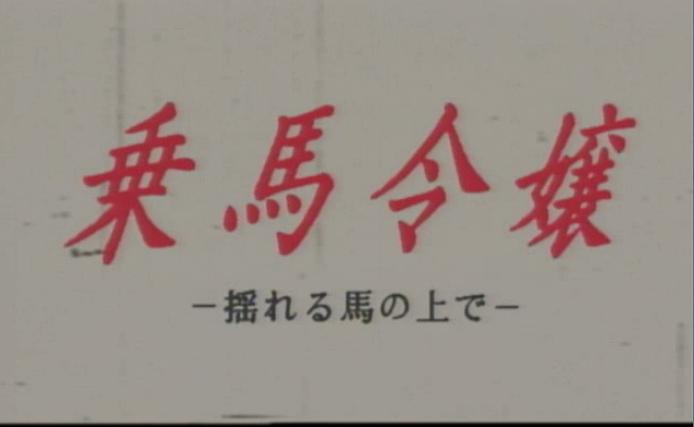 乗馬令嬢
－揺れる馬の上で－